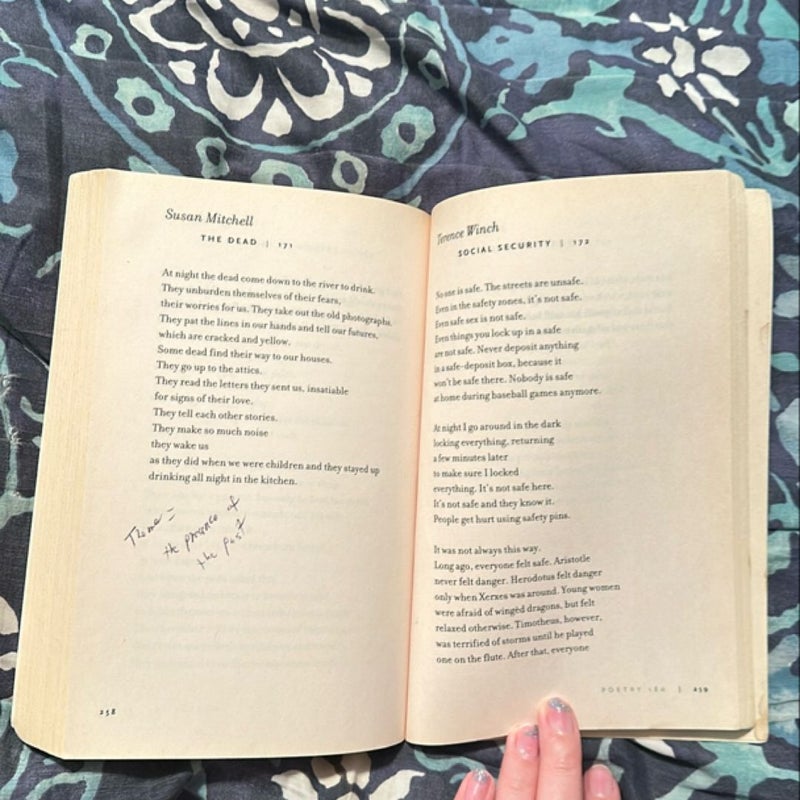 Susan Mitchell
THE DEAD | 171
At night the dead come down to the river to drink.
They unburden themselves of their fears,
their worries for us. They take out the old photographs.
They pat the lines in our hands and tell our futures,
which are cracked and yellow.
Some dead find their way to our houses.
They go up to the attics.
They read the letters they sent us, insatiable
for signs of their love.
They tell each other stories.
They make so much noise
they wake us
as they did when we were children and they stayed up
drinking all night in the kitchen.
Theme =
the presence of
the past
258
Terence Winch
SOCIAL SECURITY | 172
No one is safe. The streets are unsafe.
Even in the safety zones, it's not safe.
Even safe sex is not safe.
Even things you lock up in a safe
are not safe. Never deposit anything
in a safe-deposit box, because it
won't be safe there. Nobody is safe
at home during baseball games anymore.
At night I go around in the dark
locking everything, returning
a few minutes later
to make sure I locked
everything. It's not safe here.
It's not safe and they know it.
People get hurt using safety pins.
It was not always this way.
Long ago, everyone felt safe. Aristotle
never felt danger. Herodotus felt danger
only when Xerxes was around. Young women
were afraid of wingèd dragons, but felt
relaxed otherwise. Timotheus, however,
was terrified of storms until he played
one on the flute. After that, everyone
POETRY 180 | 259